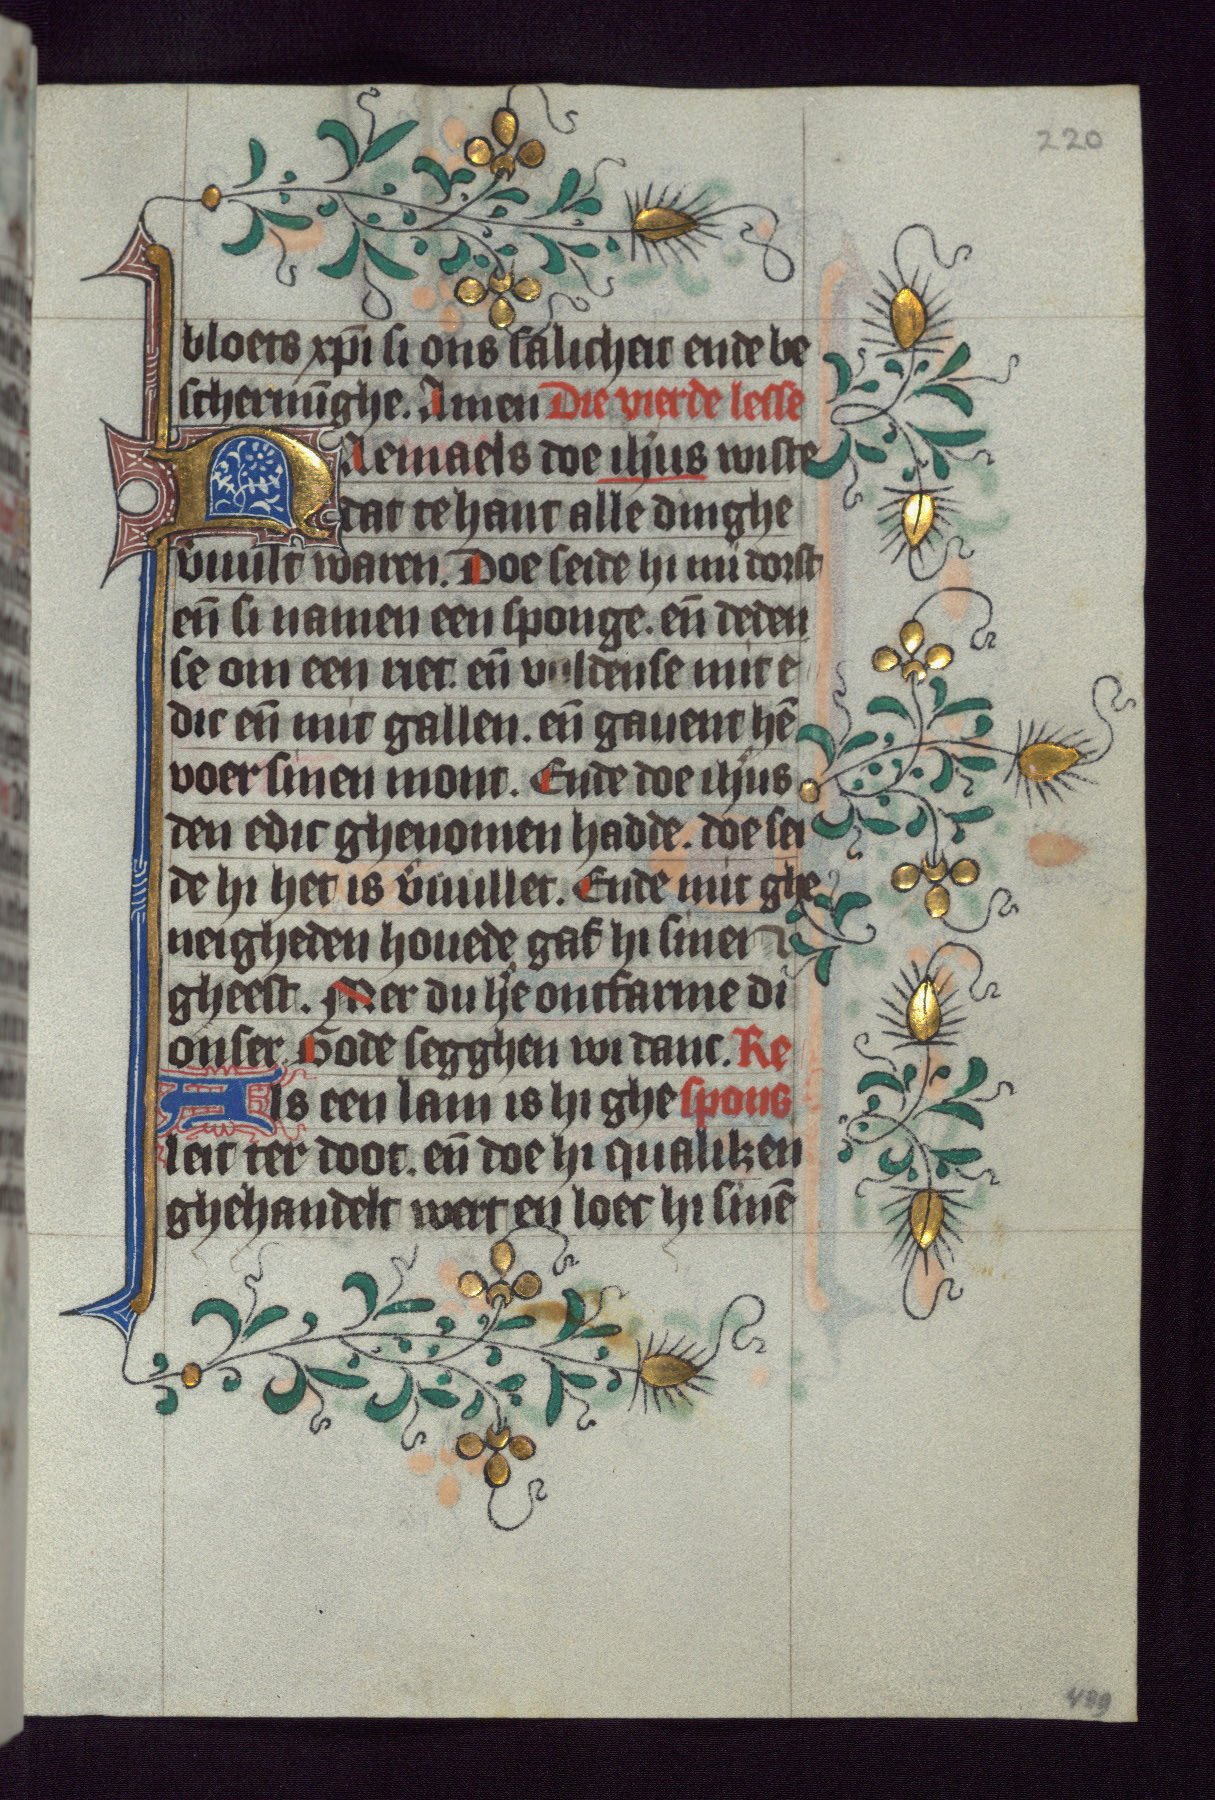 220
bloets xp̄i si ons salicheit ende be
schermīghe. Amen Die vierde lesse
NAemaels doe ihūs wiste
dat te hant alle dinghe
v̄vult waren. Doe seide hi mi dorst
en̄ si namen een sponge. en̄ deden
se om een riet. en̄ vuldense mit e
dic en̄ mit gallen. en̄ gauent hē
voer sinen mont. Ende doe ihūs
den edic ghenomen hadde. doe sei
de hi het is v̄vullet. Ende mit ghe
neigheden houede gaf hi sinen
gheest. Mer du h̄e ontfarme di
onser. Gode segghen wi danc. Re
Als een lam is hi ghe spons
leit ter doot. en̄ doe hi qualiken
ghehandelt wert en loec hi sinē
439